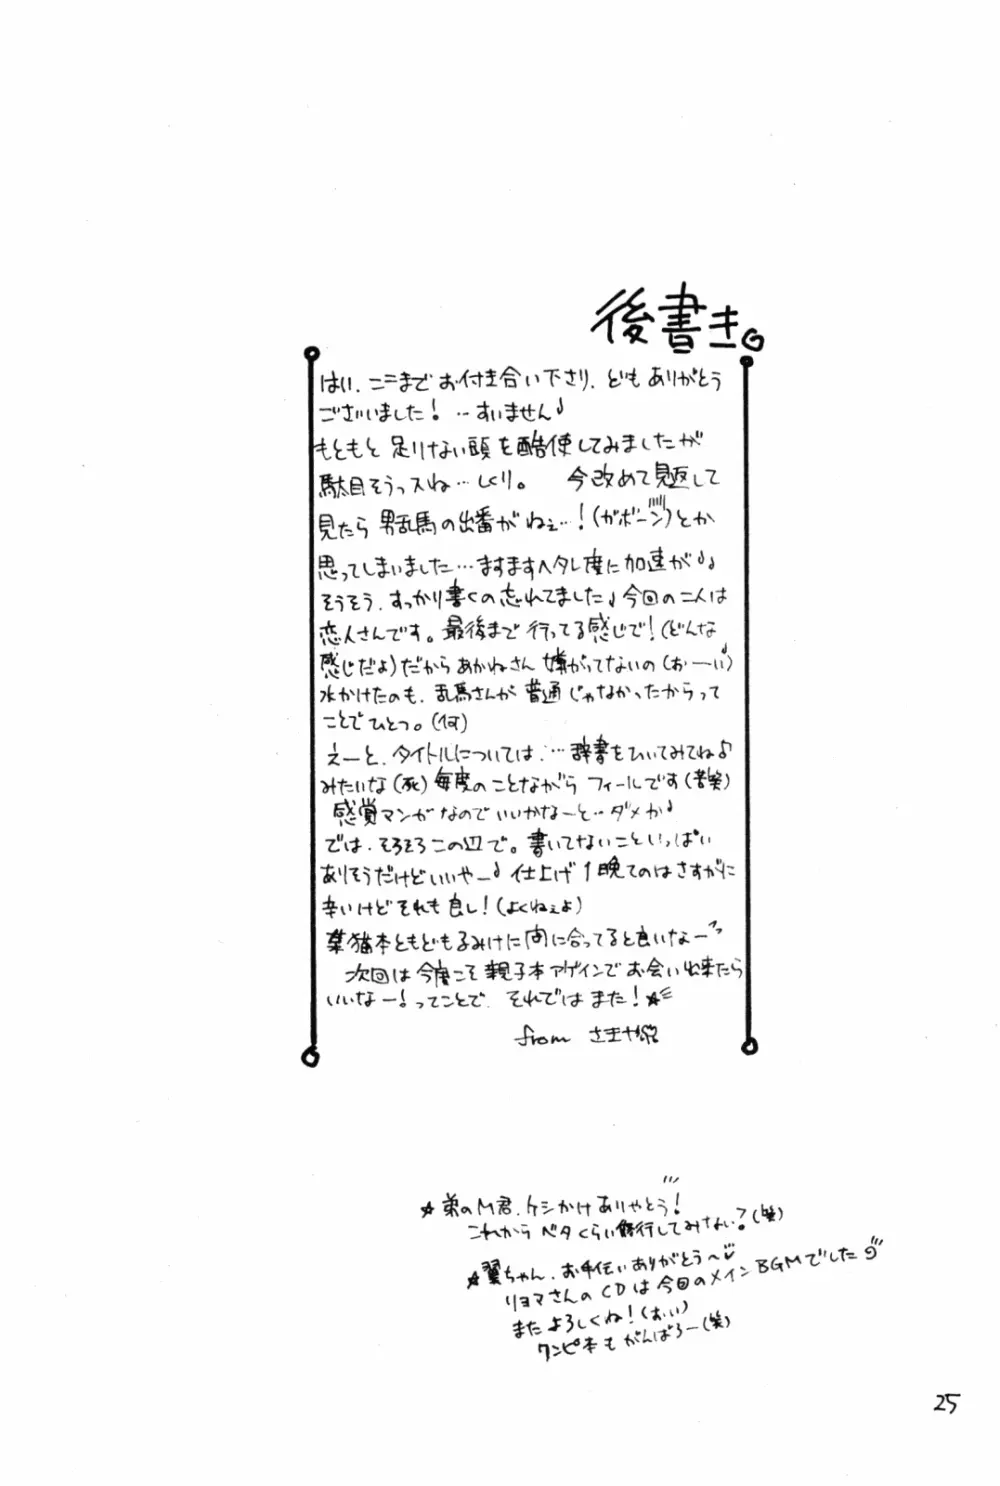 後書き。
はい、ここまでお付き合い下さり、どもありがとう
ございました！…すいません♪
もともと足りない頭を酷使してみましたが
駄目そうっスね…しくり。 今改めて見返して
見たら男乱馬の出番がねぇ…！(ガボーン)とか
思ってしまいました…ますますヘタレ度に加速が♪
そうそう、すっかり書くの忘れてました♪今回の二人は
恋人さんです。最後まで行ってる感じで！(どんな
感じだよ)だからあかねさん嫌がってないの(おーい)
水かけたのも、乱馬さんが普通じゃなかったからって
ことでひとつ。(何)
えーと、タイトルについては…辞書をひいてみてね♪
みたいな(死)毎度のことながらフィールです(苦笑)
感覚マンガなのでいいかなーと…ダメか♪
では、そろそろこの辺で。書いてないこといっぱい
ありそうだけどいいやー♪仕上げ1晩てのはさすがに
辛いけどそれも良し！(よくねぇよ)
葉猫本ともどもるみけに間に合ってると良いなーっ
次回は今度こそ親子本アゲインでお会い出来たら
いいなー！ってことで、それではまた！★
from さまや
★弟のM君、ケシかけありやとう！
これからベタくらい修行してみない？(笑)
★翼ちゃん、お手伝いありがとう～♥
リョマさんのCDは今回のメインBGMでした
またよろしくね！(おぃ)
ワンピ本もがんばろー(笑)
25